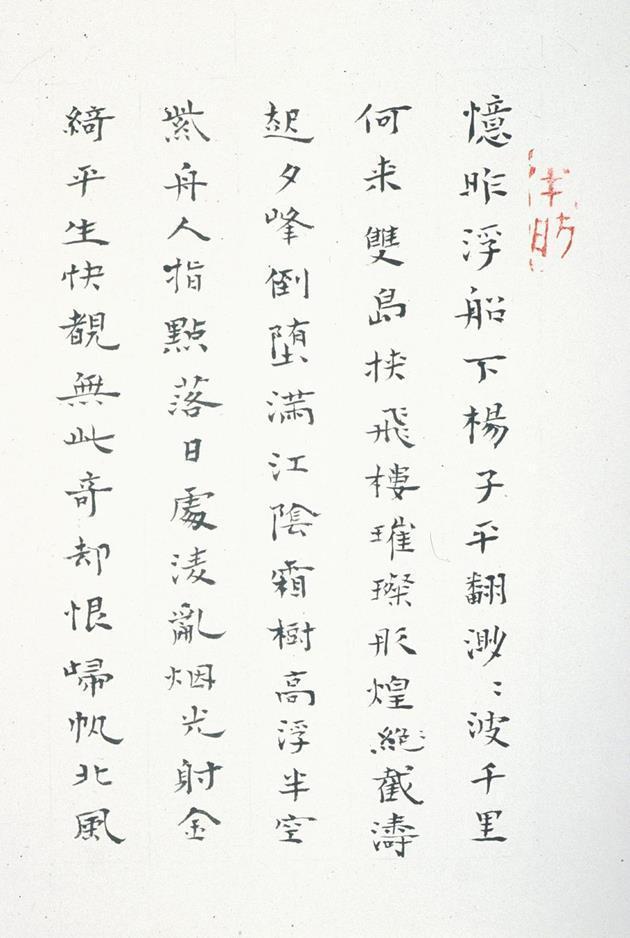 憶昨浮船下楊子平翻渺〻波千里
何来雙島挟飛樓璀璨彤煌絕截濤
起夕峰倒堕满江陰霜樹高浮半空
紫舟人指點落日處淩亂烟光射金
綺平生快覩無此奇却恨歸帆北風